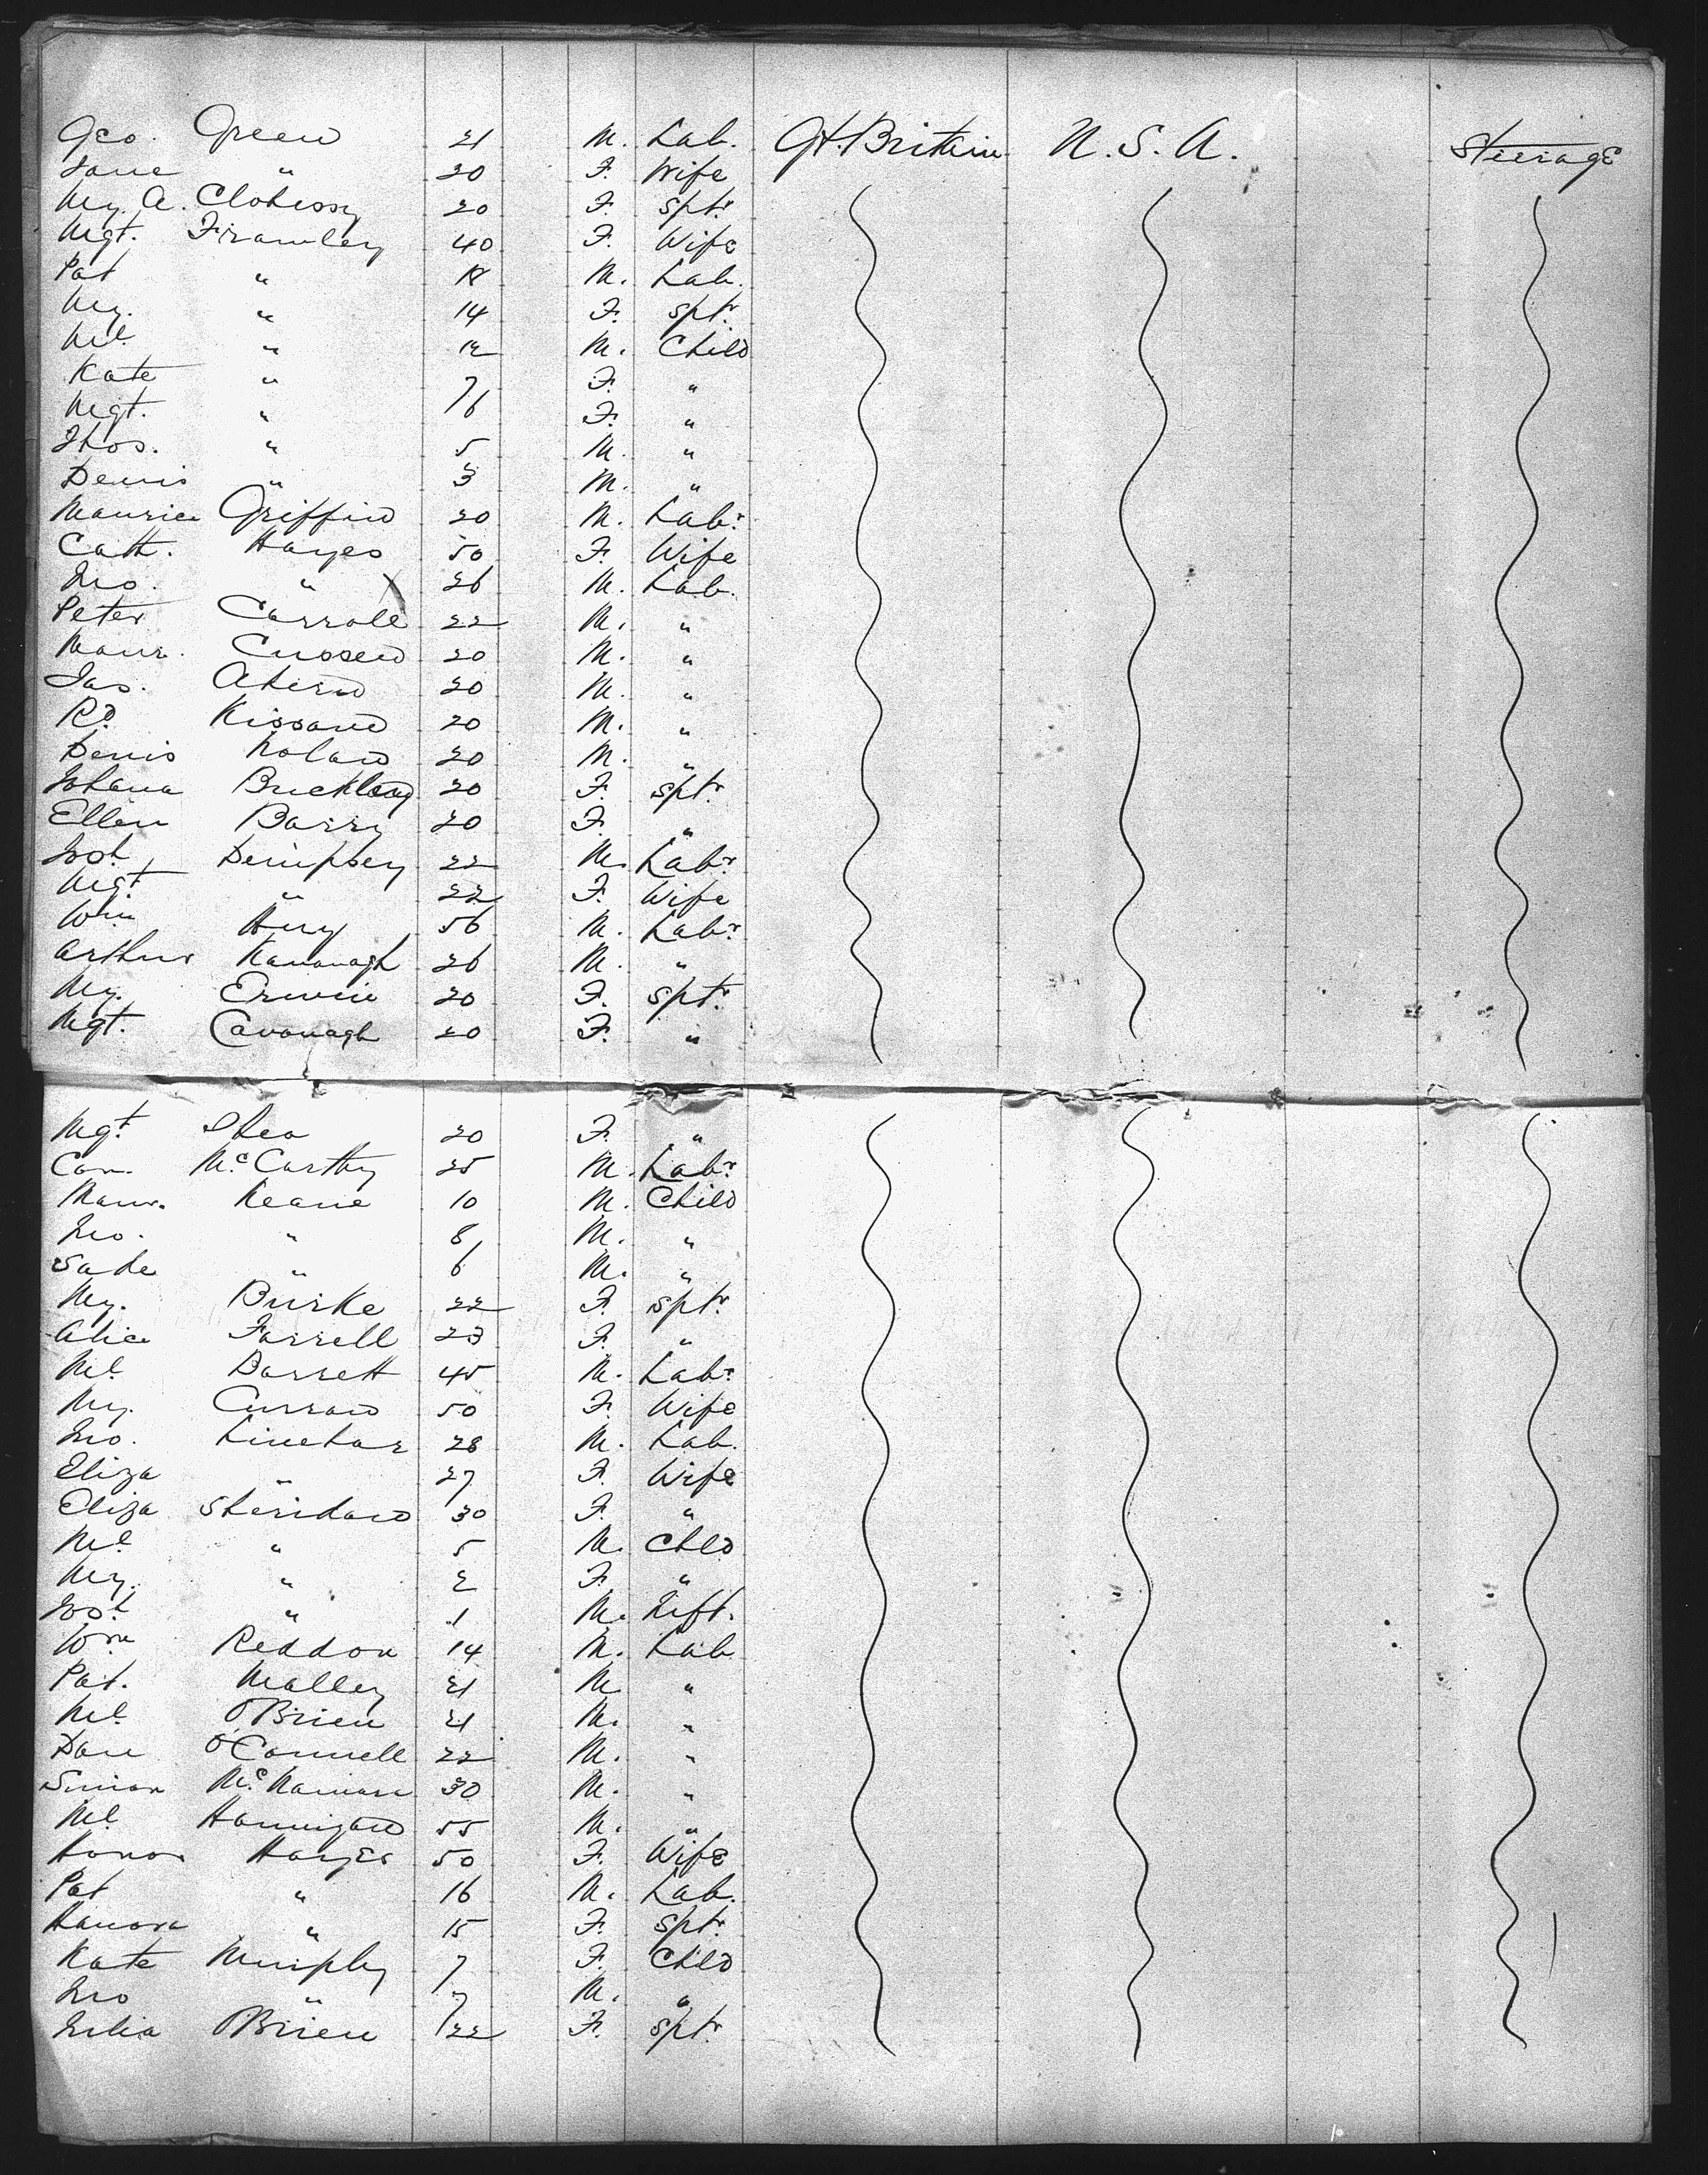 Geo. Green 21 M. Lab. Gt. Britain U.S.A. Steerage
Jane " 20 F. Wife
My. A. Clohessy 20 F. Sptr.
Mgt. Frawley 40 F. Wife
Pat " 18 M. Lab.
My. " 14 F. Sptr.
Ml. " 12 M. Child
Kate " 7 F. "
Mgt. " 6 F. "
Thos. " 5 M. "
Denis " 3 M. "
Maurice Griffin 20 M. Labr.
Cath. Hayes 50 F. Wife
Jno. " 26 M. Lab.
Peter Carroll 22 M. "
Maur. Cussen 20 M. "
Jas. Ahern 20 M. "
Rd. Kissane 20 M. "
Denis Nolan 20 M. "
Johana Buckley 20 F. Sptr.
Ellen Barry 20 F. "
Josh. Dempsey 22 M. Labr.
Mgt. " 22 F. Wife
Wm 56 M. Labr.
Arthur Kavanagh 26 M. "
My. Erwin 20 F. Sptr.
Mgt. Cavanagh 20 F. "
Mgt. Shea 20 F. "
Con. McCarthy 25 M. Labr.
Maur. Keane 10 M. Child
Jno. " 8 M. "
" 6 M. "
My. Burke 22 F. Sptr.
Alice Farrell 23 F. "
Ml. Barrett 45 M. Labr.
My. Curran 50 F. Wife
Jno. Linehar 28 M. Lab.
Eliza " 27 F. Wife
Eliza Sheridan 30 F. "
Ml. " 5 M. Chld
My. " 2 F. "
Josh. " 1 M. Inft.
Wm Reddon 14 M. Lab
Pat. Malley 21 M "
Ml. O'Brien 21 M. "
Dan O'Connell 22 M. "
Simon McNamara 30 M. "
Ml. Hannigan 55 M. "
Honor Hayes 50 F. Wife
Pat " 16 M. Lab.
Hanora " 15 F. Sptr.
Kate Murphy 7 F. Chld
Jno " 7 M. "
Julia O'Brien 22 F. Sptr.